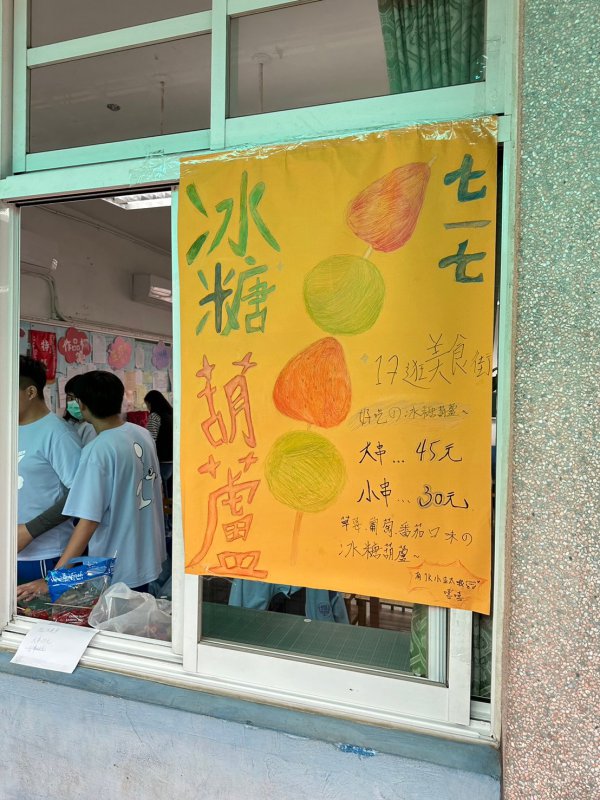 冰糖
葫蘆
七一七
17逛美食街
好吃の冰糖葫蘆~
大串...45元
小串...30元
草莓.葡萄.番茄口味の
冰糖葫蘆~
作品